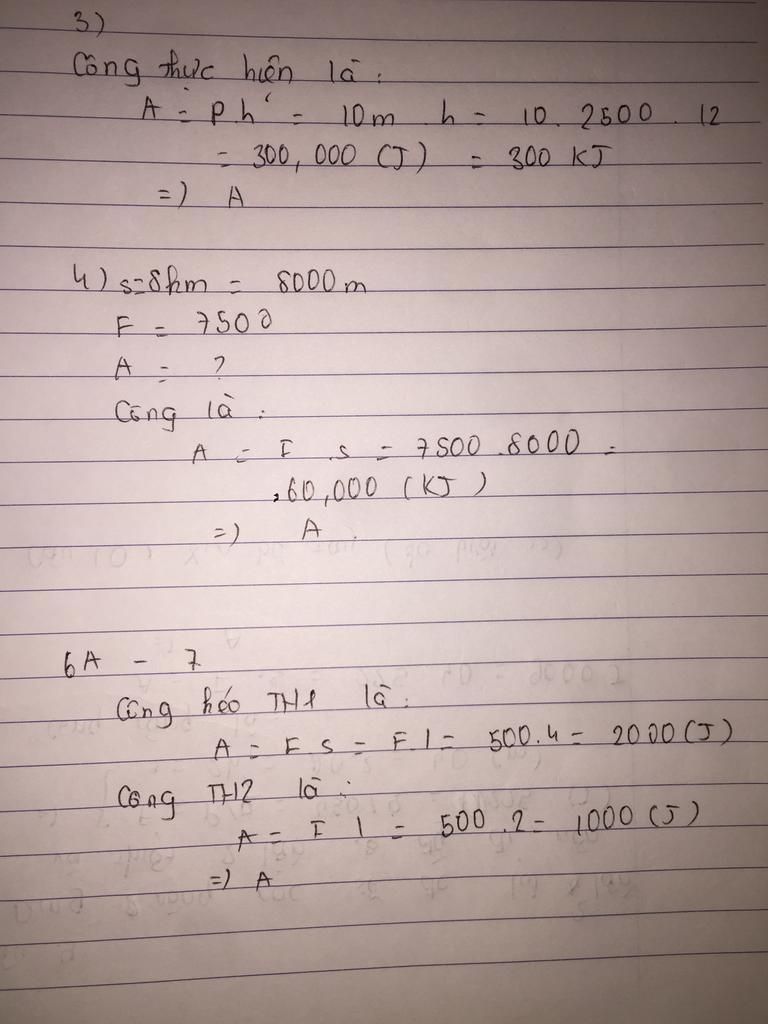 3)
Công thực hiện là :
A = P.h = 10m . h = 10. 2500 . 12
= 300,000 (J) = 300 KJ
=) A
4) s=8km = 8000m
F = 7500
A = ?
Công là :
A = F .s = 7500 .8000 =
60,000 (KJ)
=) A .
6A - 7
Công kéo TH1 là :
A = F s = F.l = 500.4 = 2000 (J)
Công TH2 là :
A = F l = 500 .2 = 1000 (J)
=) A